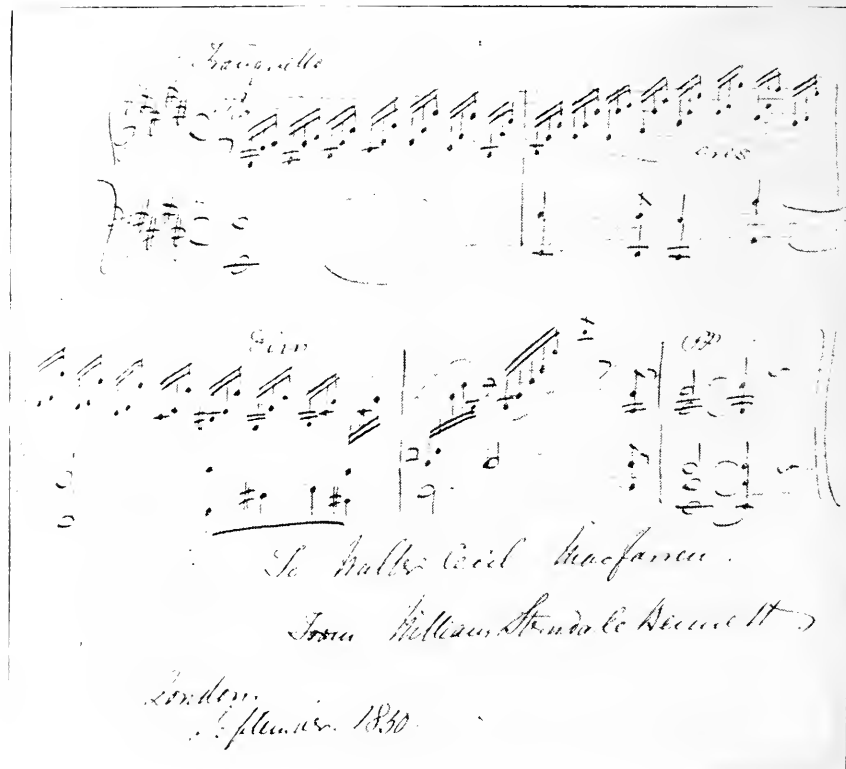 Tranquillo
cres
Dim
To Walter Cecil Macfarren.
From William Sterndale Bennett
London,
September 1850.